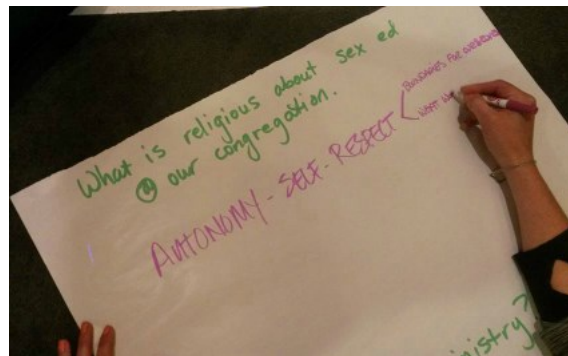 What is religious about sex ed
@ our congregation.
AUTONOMY - SELF - RESPECT
BOUNDARIES FOR
WHAT
ministry?